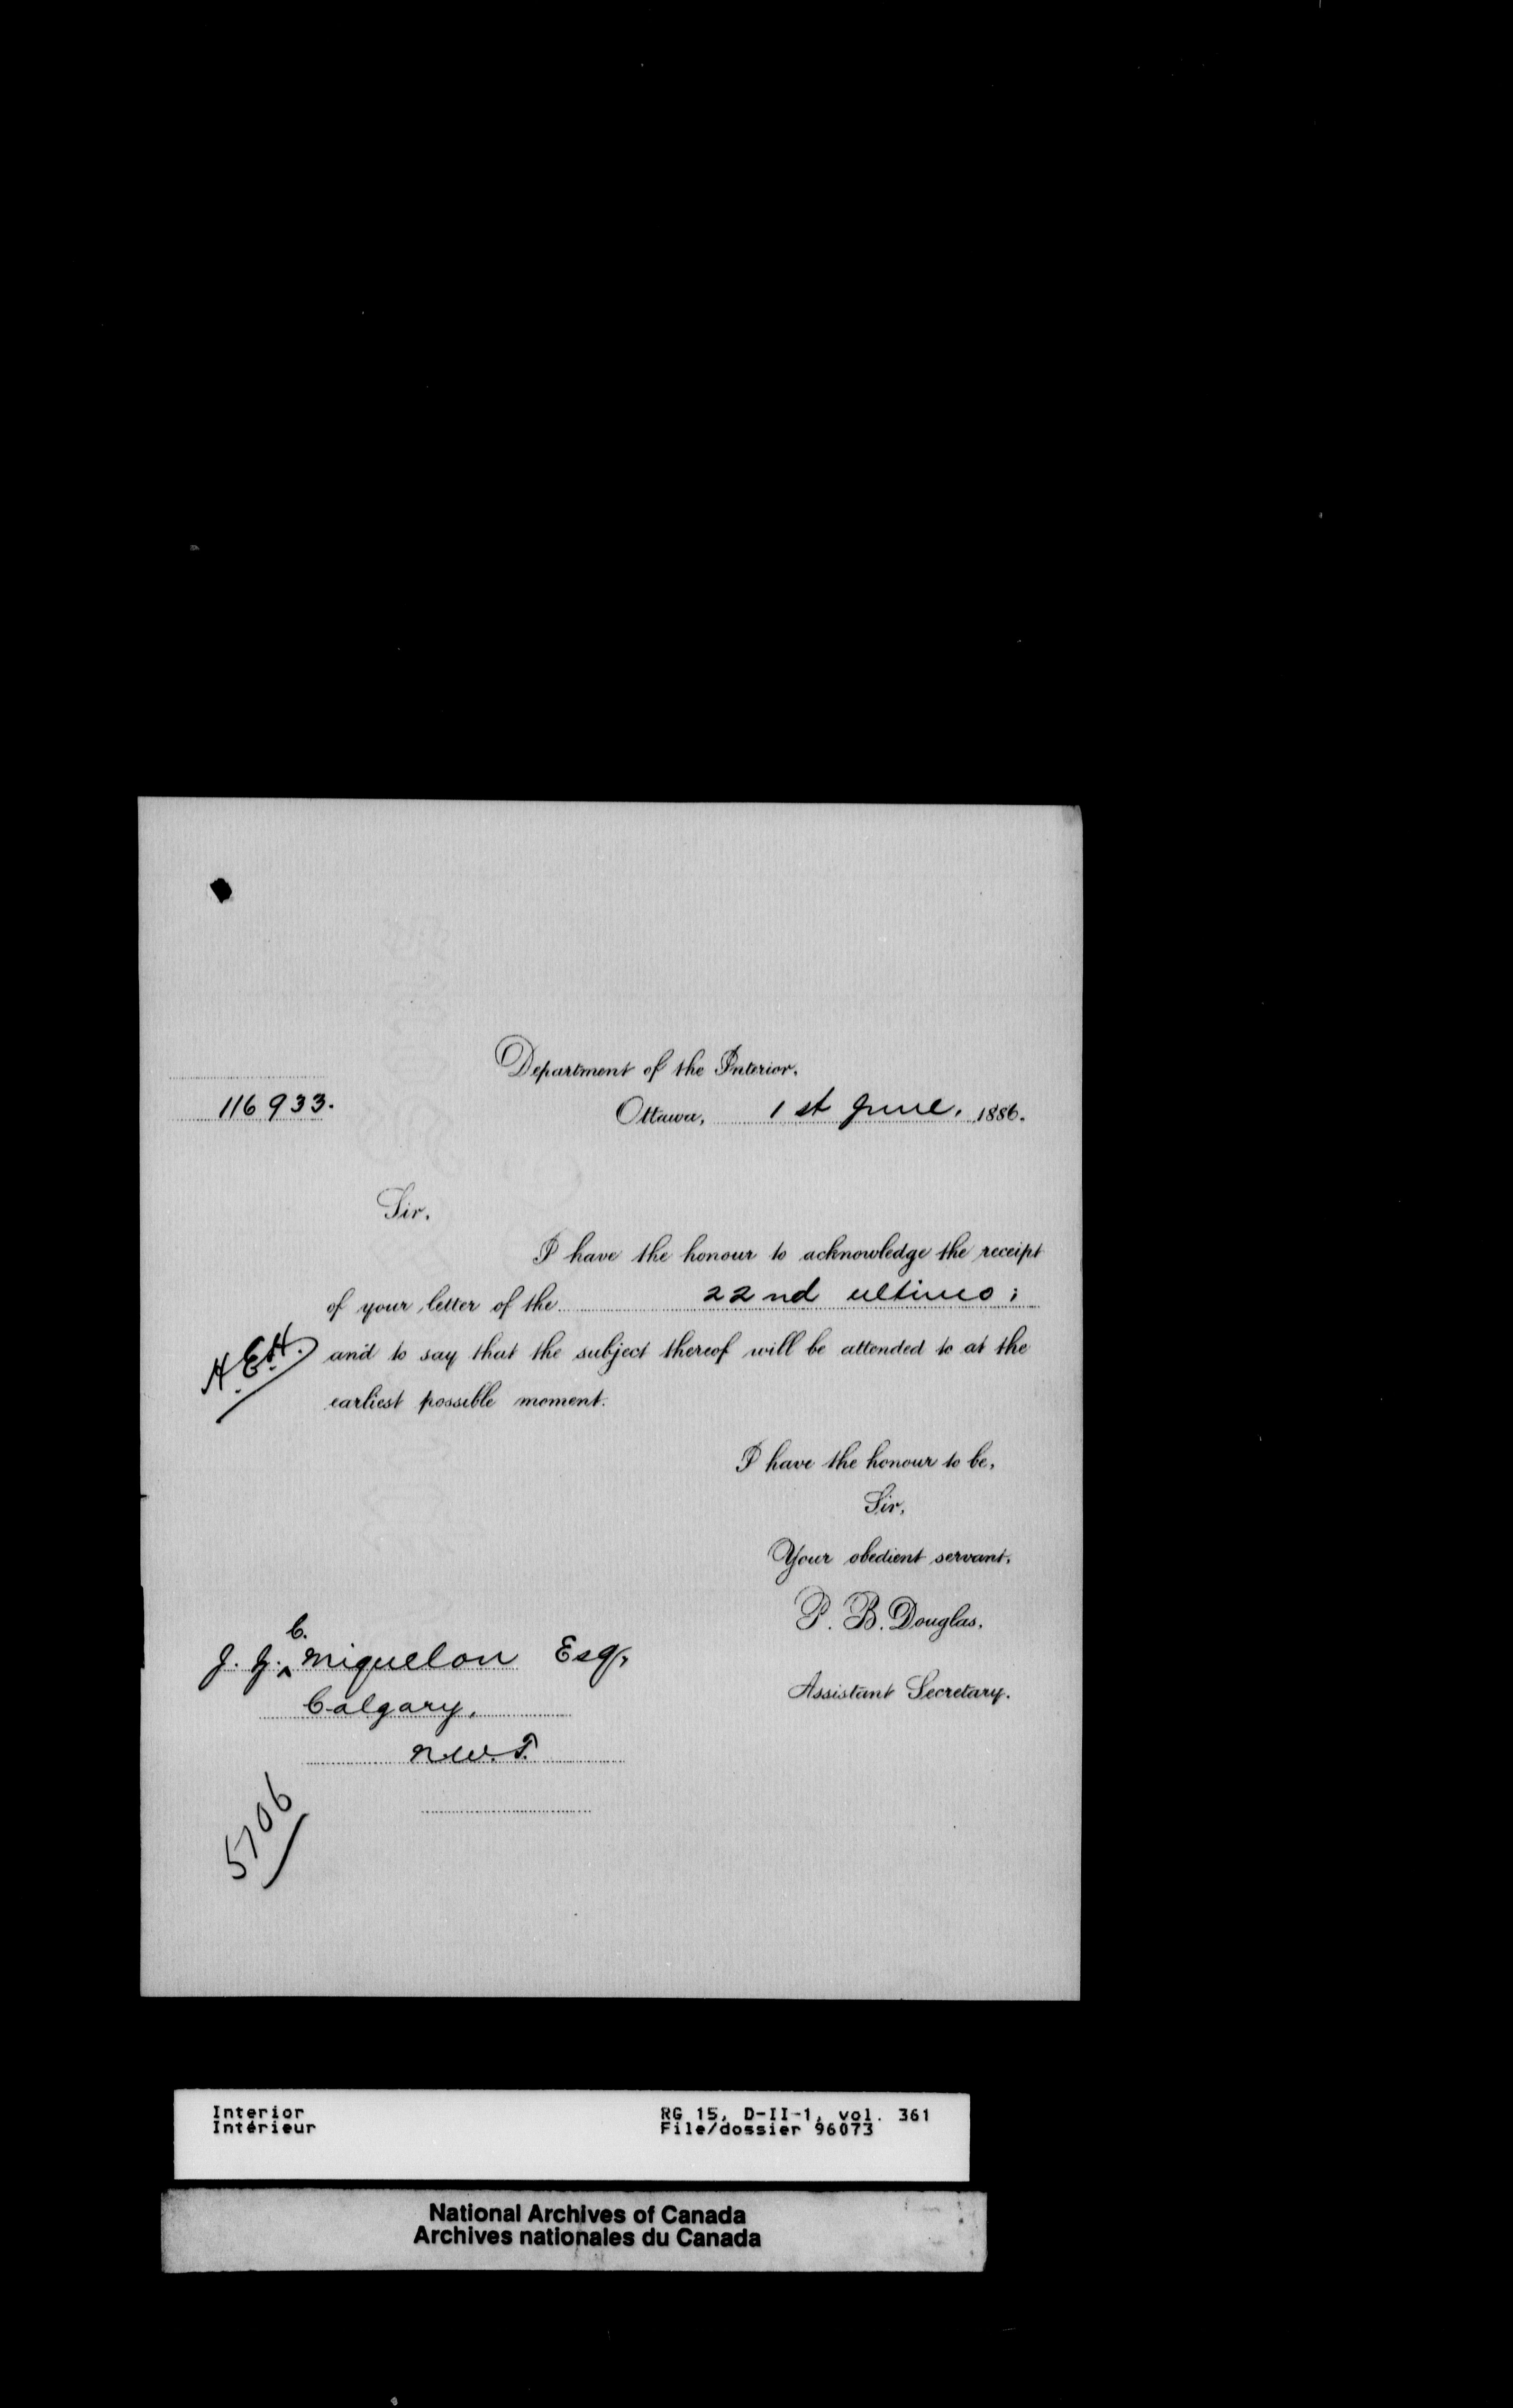 Department of the Interior,
116933.
Ottawa, 1st June, 1886.
Sir,
I have the honour to acknowledge the receipt
of your letter of the 22nd ultimo;
and to say that the subject thereof will be attended to at the
earliest possible moment.
I have the honour to be,
Sir,
Your obedient servant,
P. B. Douglas,
Assistant Secretary.
C.
J. Z. ^ Miquelon Esq,
Calgary,
N.W.T.
5706
Interior
Intérieur
RG 15, D-II-1, vol. 361
File/dossier 96073
National Archives of Canada
Archives nationales du Canada